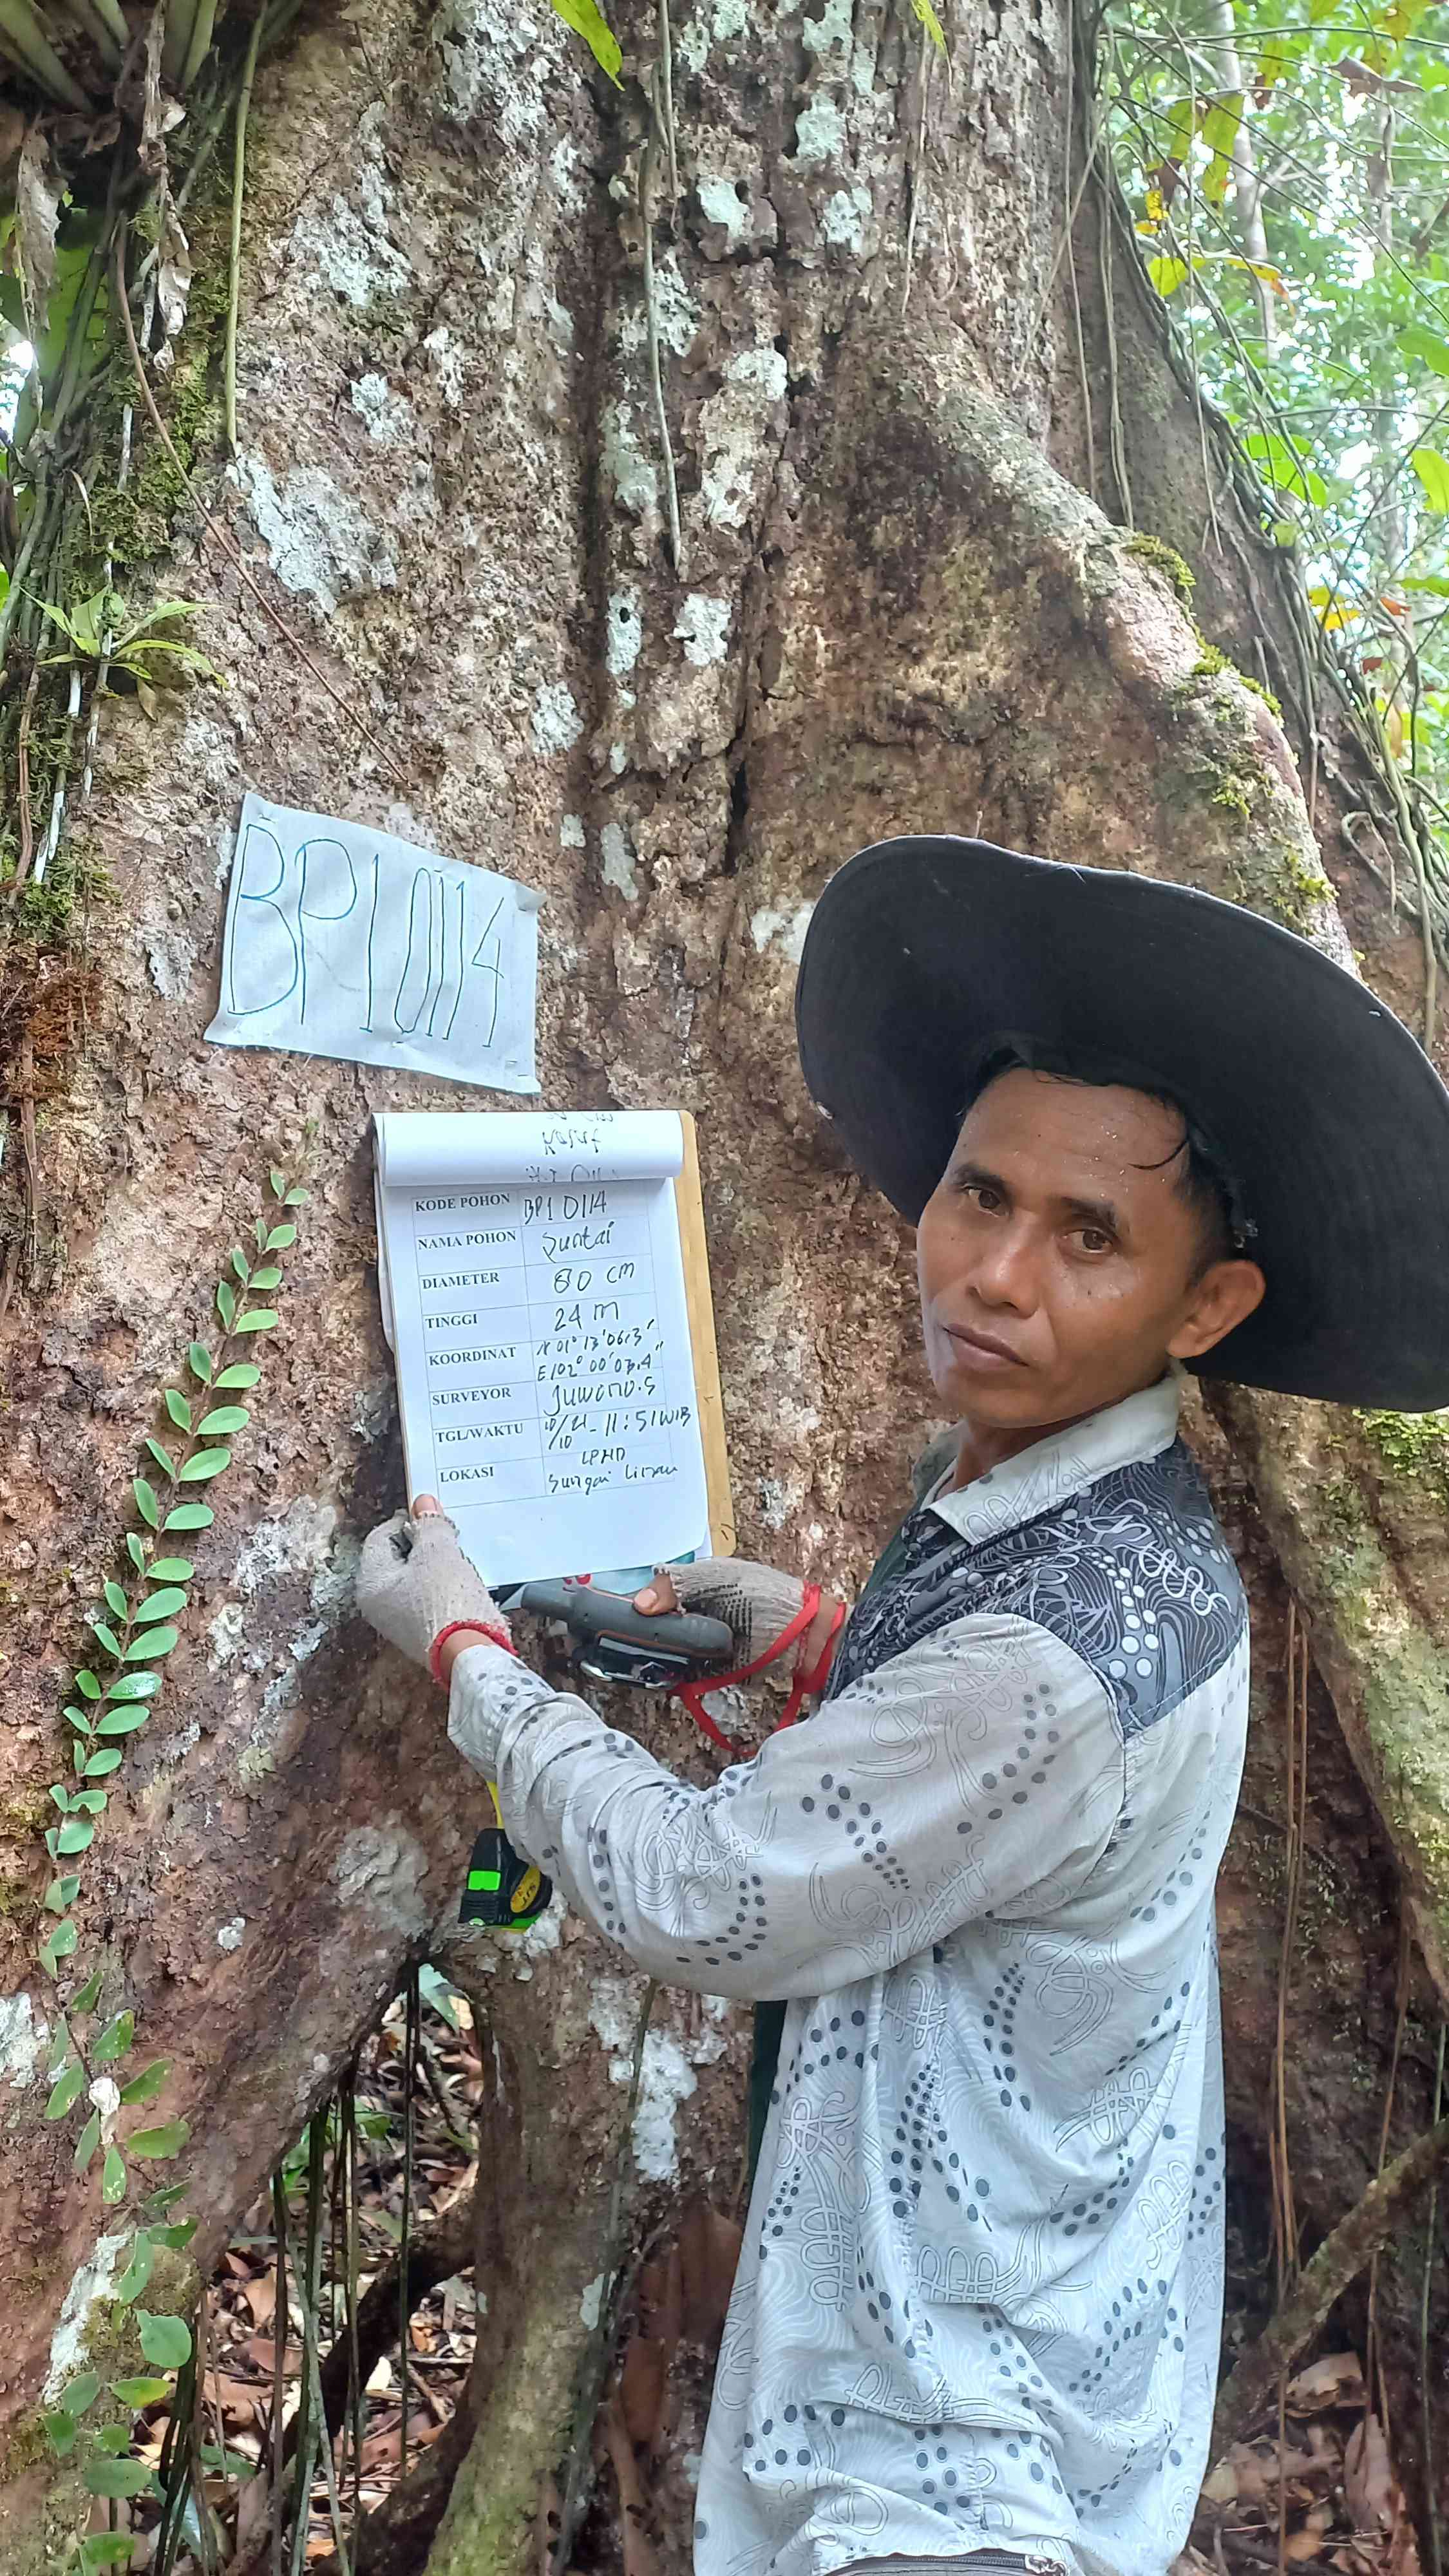 BP10114
KODE POHON BP1 0114
NAMA POHON Suntai
DIAMETER 80 cm
TINGGI 24 m
KOORDINAT N 01° 13' 06.3"
E 102° 00' 03.4"
SURVEYOR Juwono.S
TGL/WAKTU 10/10/21 - 11:51 WIB
LOKASI LPHD
Sungai Linau